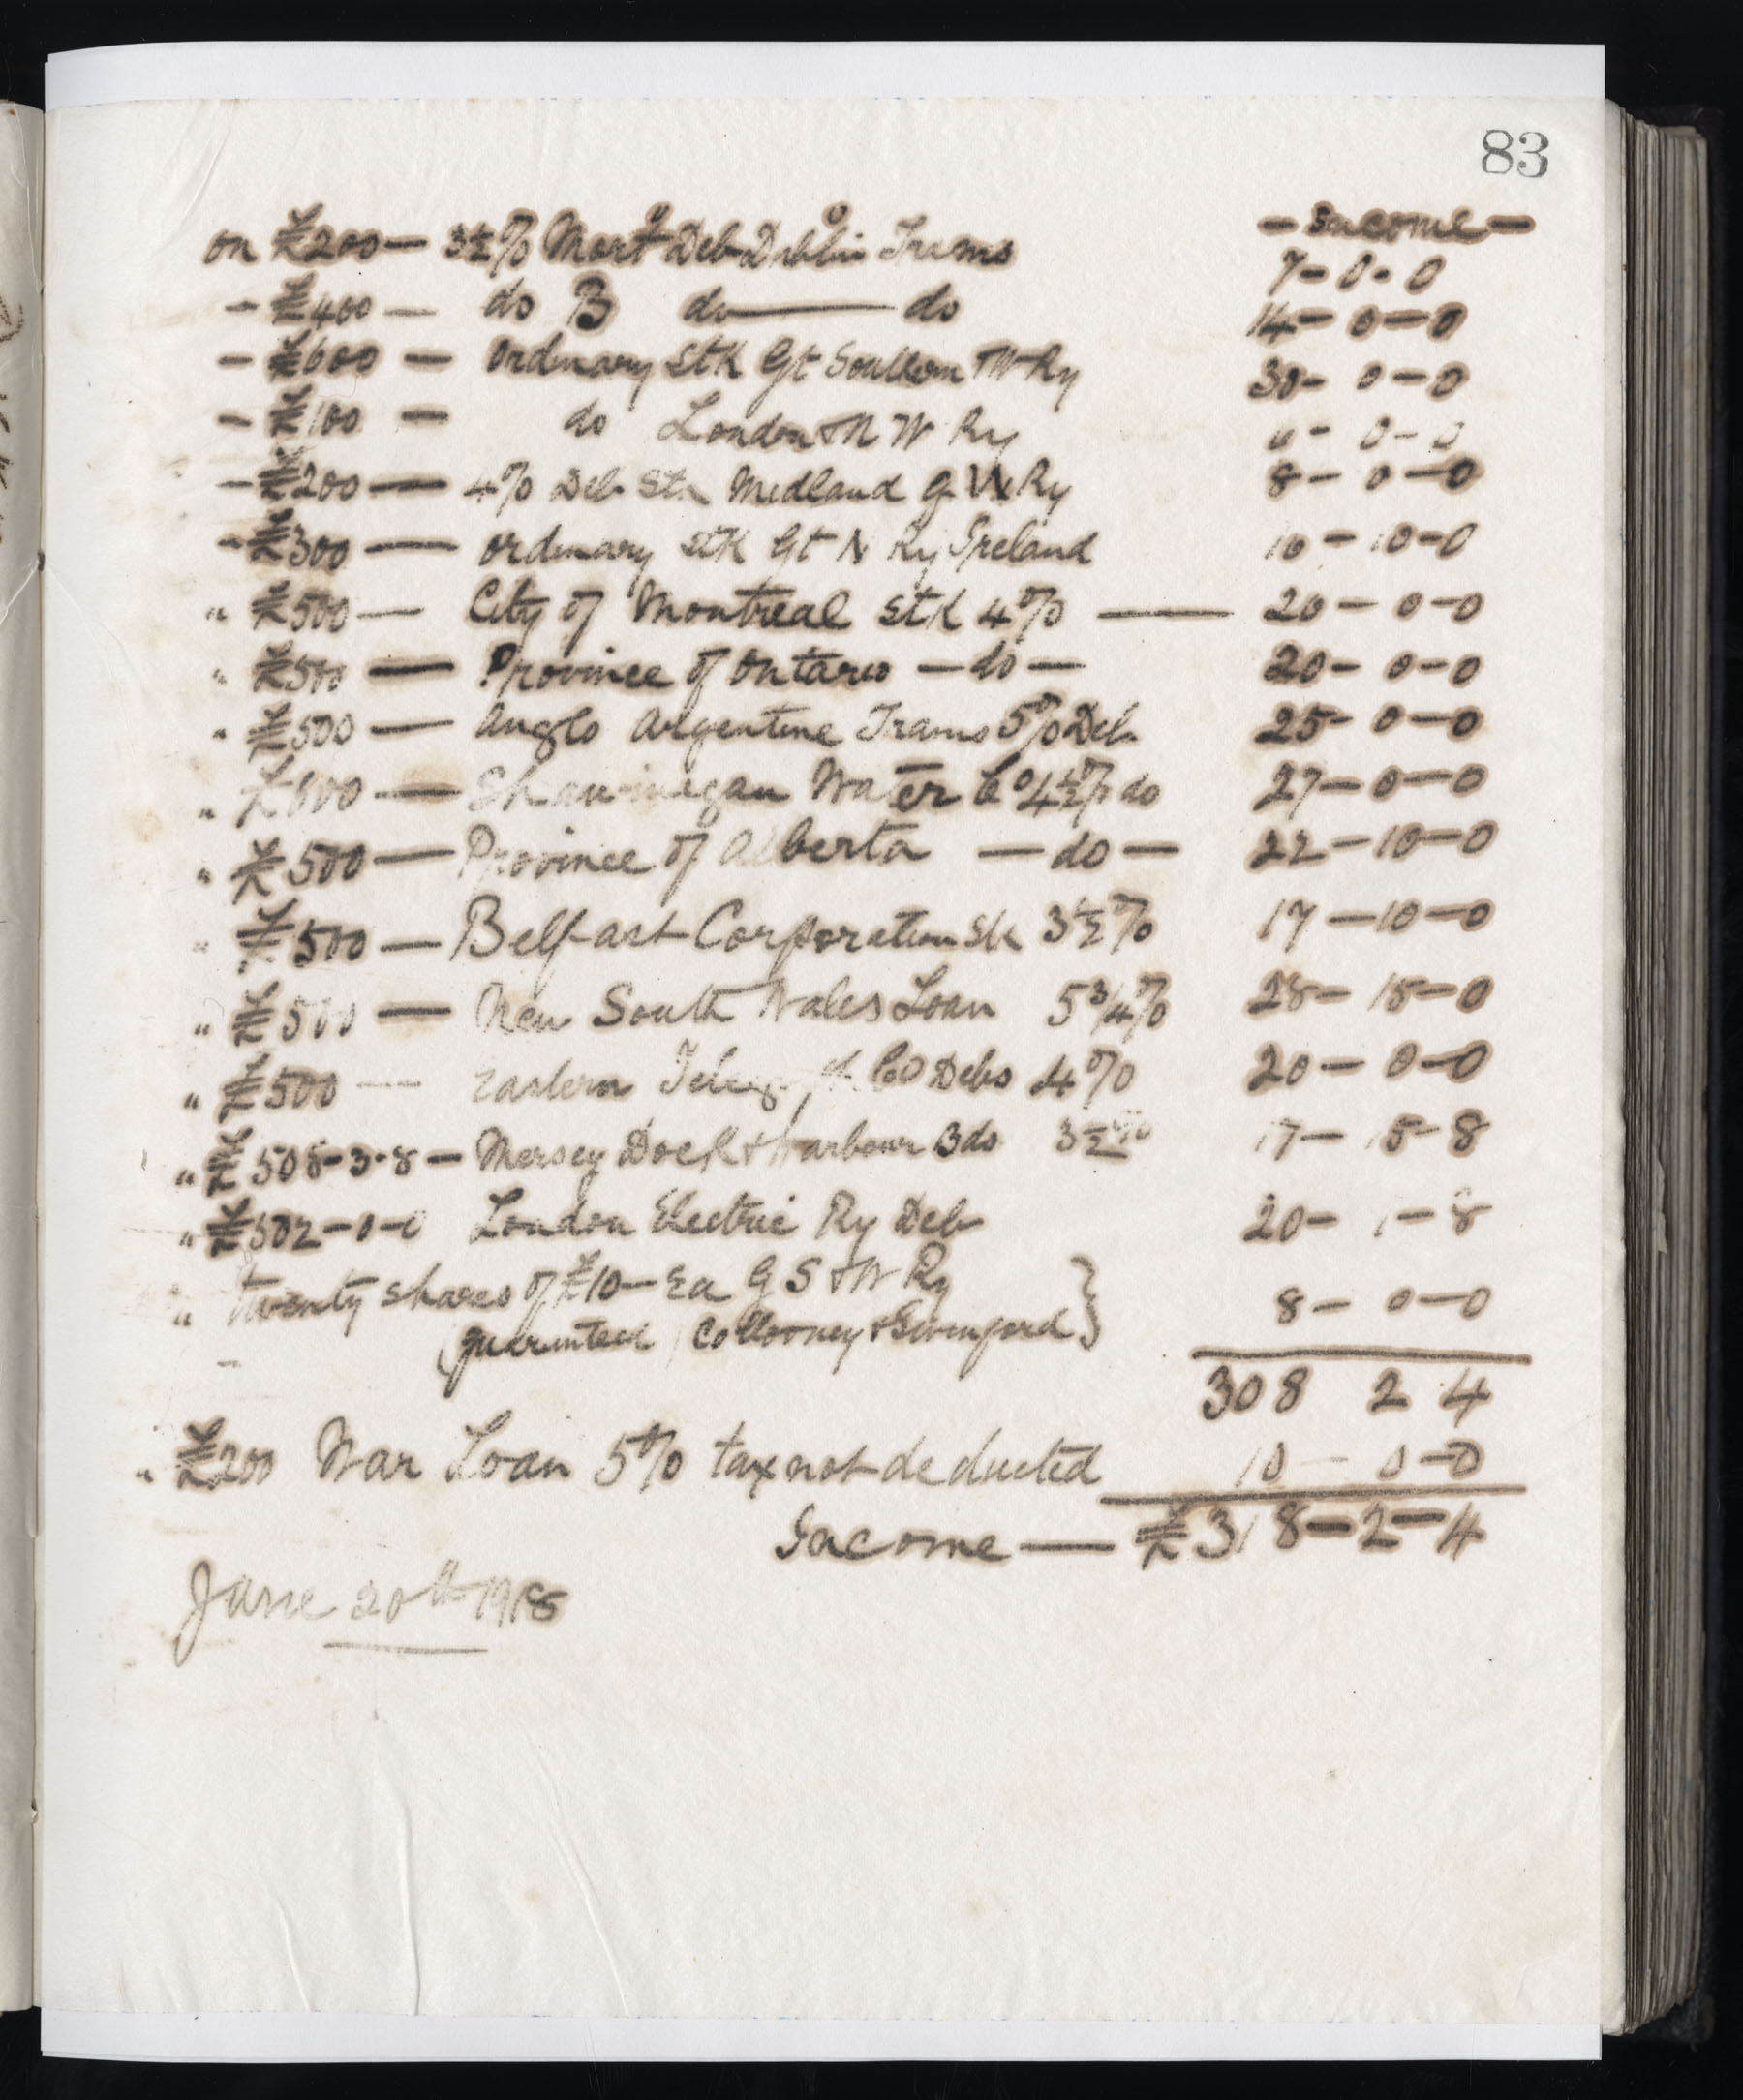 83
— Income —
on £200 — 3½% Mort Deb Dublin Trams 7-0-0
- £400 — do B do — do 14-0-0
- £600 — Ordinary Stk Gt Southern & W Ry 30-0-0
- £100 — do London & N W Ry 6-0-0
- £200 — 4% Deb Stk Midland G W Ry 8-0-0
- £300 — Ordinary Stk Gt N Ry Ireland 16-10-0
" £500 — City of Montreal Stk 4% — 20-0-0
" £500 — Province of Ontario — do — 20-0-0
" £500 — Anglo Argentine Trams 5% Deb 25-0-0
" £600 — Shawinegan Water Co 4½% do 27-0-0
" £500 — Province of Alberta — do — 22-10-0
" £500 — Belfast Corporation Stk 3½% 17-10-0
" £500 — New South Wales Loan 5¾% 28-15-0
" £500 — Eastern Telegraph Co Debs 4% 20-0-0
" £508-3-8 — Mersey Dock & Harbour Bds 3½% 17-15-8
" £502-0-0 London Electric Ry Deb 20-1-8
" Twenty shares of £10 — Ea G S & W Ry
(guaranteed Collooney & Swinford} 8-0-0
308 2 4
" £200 War Loan 5% tax not deducted 10-0-0
Income — £318-2-4
June 20th 1918